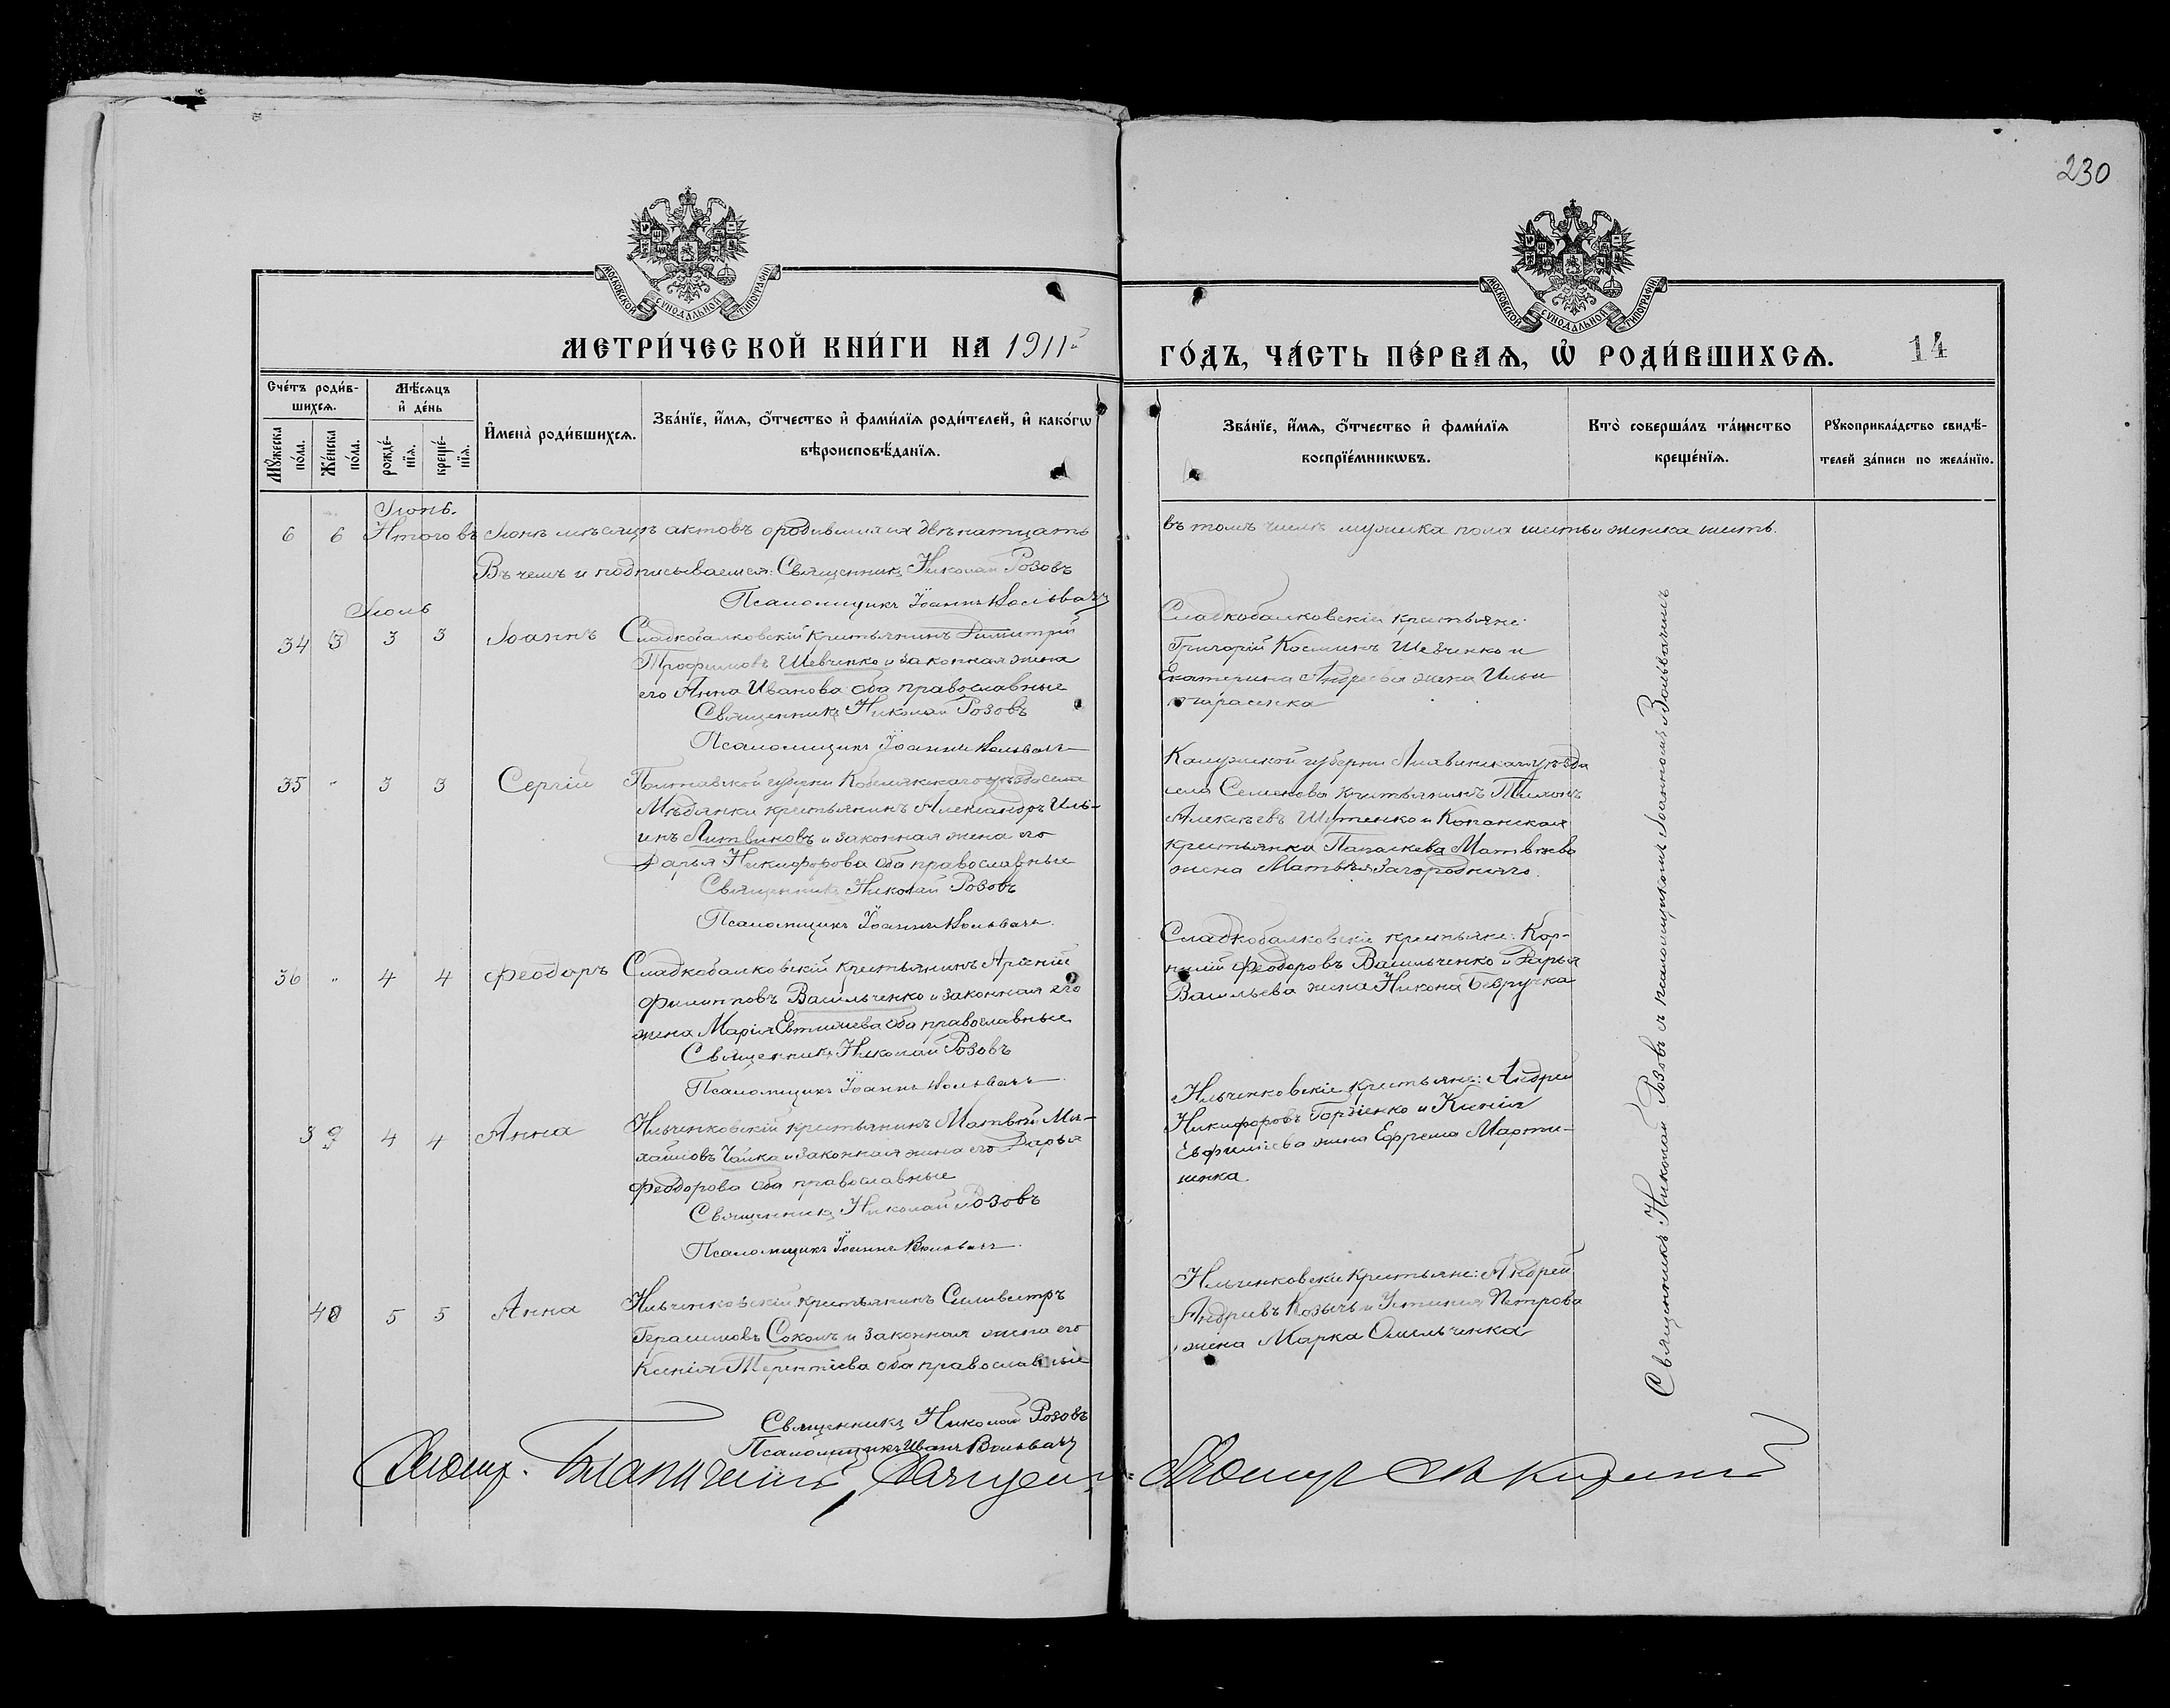 230
МОСКОВСКОЙ СУНОДАЛЬНОЙ ТИПОГРАФІИ
МОСКОВСКОЙ СУНОДАЛЬНОЙ ТИПОГРАФІИ
МЕТРИ́ЧЕСКОЙ КНИ́ГИ НА 1911й
ГО́ДЪ, ЧА́СТЬ ПЕ́РВАѦ, Ѡ҆ РОДИ́ВШИХСѦ.
14
Счéтъ роди́в-
шихсѧ.
Мѣ́сѧцъ
и҆ де́нь
Мꙋ́жеска
по́ла.
Же́нска
по́ла.
рожде́-
нїѧ.
креще́-
нїѧ.
И҆мена̀ роди́вшихсѧ.
Зва́нїе, и҆́мѧ, ѻ҆́тчество и҆ фами́лїѧ роди́телей, и҆ како́гѡ
вѣроисповѣ́данїѧ.
Зва́нїе, и҆́мѧ, ѻ҆́тчество и҆ фами́лїѧ
воспрїе́мникѡвъ.
Кто̀ соверша́лъ та́инство
креще́нїѧ.
Рꙋкоприкла́дство свидѣ́-
телей за́писи по жела́нїю.
Іюнь.
6 6 Итого въ Іюнѣ мѣсяцѣ актовъ о родившихся двѣнатцать
въ томъ числѣ мужска пола шесть и женска шесть.
Въ чемъ и подписываемся: Священникъ Николай Розовъ
Псаломщикъ Іоаннъ Вольвачъ
Іюль
34 3 3 Іоаннъ Сладкобалковскій крестьянинъ Димитрій
Трофимовъ Шевченко и законная жена
его Анна Иванова оба православные
Священникъ Николай Розовъ
Псаломщикъ Іоаннъ Вольвачъ
Сладкобалковскіе крестьяне:
Григорій Косминъ Шевченко и
Екатерина Андреева жена Ильи
Тарасенка
35 " 3 3 Сергій Полтавской губерніи Кобелякскаго уѣзда села
крестьянинъ Александръ Иль-
инъ Литвиновъ и законная жена его
Дарья Никифорова оба православные
Священникъ Николай Розовъ
Псаломщикъ Іоаннъ Вольвачъ.
Калужской губерніи уѣзда
села Семенова крестьянинъ Тихонъ
Алексѣевъ и Копанская
крестьянка Параскева Матвѣева
жена Матвѣя Загородняго.
36 " 4 4 Феодоръ Сладкобалковскій крестьянинъ Арсеній
Филипповъ Васильченко и законная его
жена Марія Евтихіева оба православные
Священникъ Николай Розовъ
Псаломщикъ Іоаннъ Вольвачъ
Сладкобалковскіе крестьяне: Кор-
нилій Феодоровъ Васильченко и Дарья
Васильева жена Никона Безручка
39 4 4 Анна Ильченковскій крестьянинъ Матвѣй Ми-
хаиловъ Чайка и законная жена его Дарья
Феодорова оба православные
Священникъ Николай Розовъ
Псаломщикъ Іоаннъ Вольвачъ.
Ильченковскіе крестьяне: Андрей
Никифоровъ Гордіенко и Ксенія
Евфиміева жена Ефрема Марти-
ненка.
40 5 5 Анна Ильченковскій крестьянинъ Сильвестръ
Герасимовъ Соколъ и законная жена его
Ксенія Терентіева оба православные
Священникъ Николай Розовъ
Псаломщикъ Иванъ Вольвачъ
Ильченковскіе крестьяне: Андрей
Андреевъ Козычъ и Устинія Петрова
жена Марка Омельченка
Священникъ Николай Розовъ съ псаломщикомъ Іоанномъ Вольвачемъ